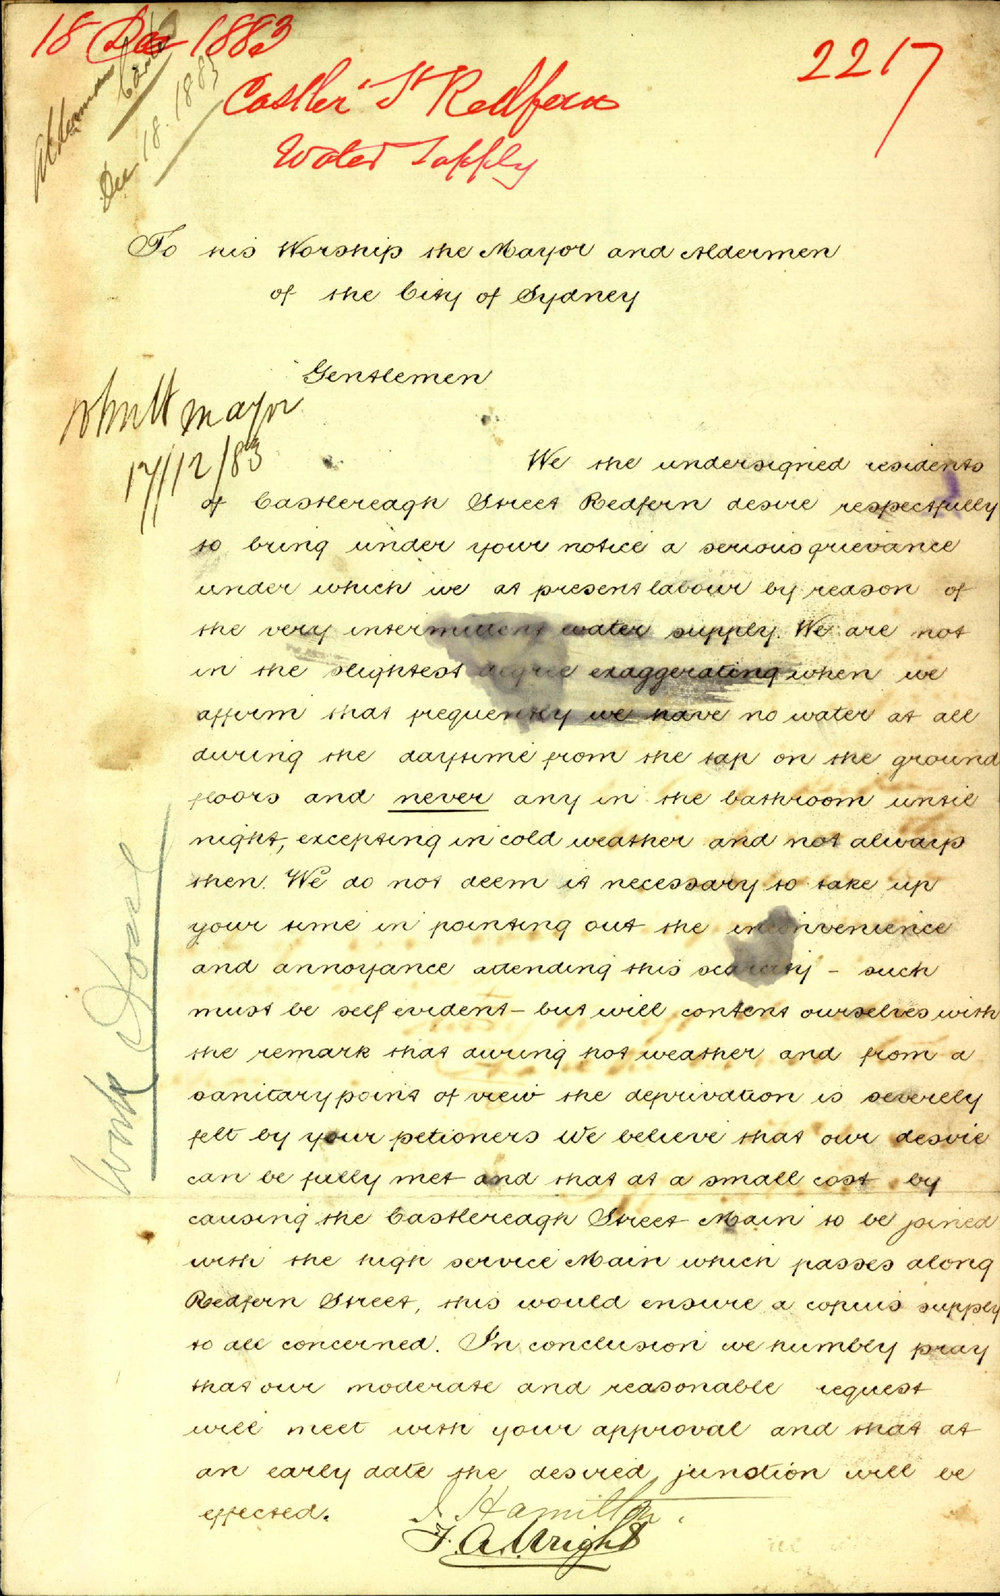 18 Dec 1883
2217
Alderman
Dec 18. 1883
Castler' St Redfern
Water Supply
To his Worship the Mayor and Aldermen
of the City of Sydney
Gentlemen
mayor
17/12/83
We the undersigned residents
of Castlereagh Street Redfern desire respectfully
to bring under your notice a serious grievance
under which we at present labour by reason of
the very intermittent water supply. We are not
in the slightest degree exaggerating when we
affirm that frequently we have no water at all
during the daytime from the tap on the ground
floors and never any in the bathroom until
night, excepting in cold weather and not always
then. We do not deem it necessary to take up
your time in pointing out the inconvenience
and annoyance attending this scarcity - such
must be self evident - but will content ourselves with
the remark that during hot weather and from a
sanitary point of view the deprivation is severely
felt by your petioners We believe that our desire
can be fully met and that at a small cost by
causing the Castlereagh Street Main to be joined
with the high service Main which passes along
Redfern Street, this would ensure a copius supply
to all concerned. In conclusion we humbly pray
that our moderate and reasonable request
will meet with your approval and that at
an early date the desired junction will be
effected.
Work Done
J Hamilton.
F. A. Wright